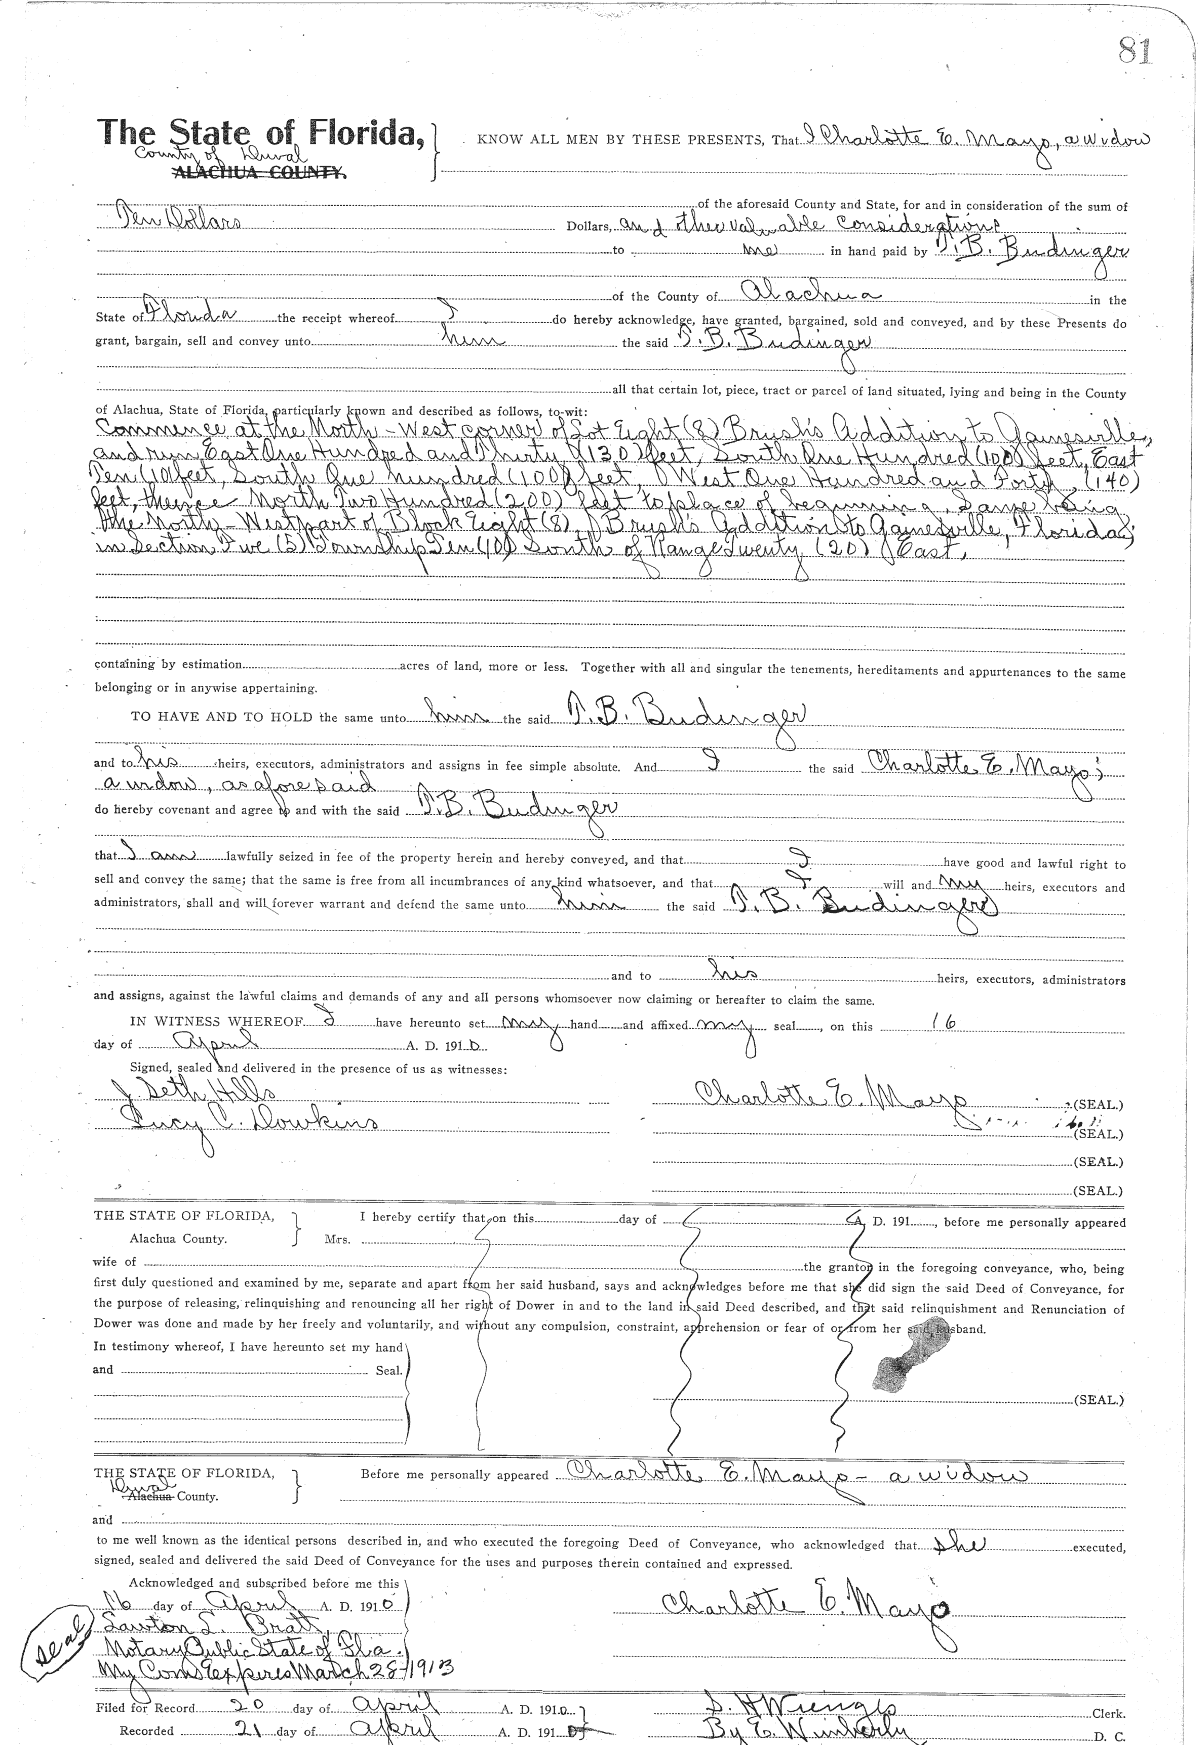 81
The State of Florida, KNOW ALL MEN BY THESE PRESENTS, That I Charlotte E. Mayo, a widow
County of Duval
ALACHUA COUNTY.
of the aforesaid County and State, for and in consideration of the sum of
Ten Dollars Dollars, and other valuable considerations
to me in hand paid by T. B. Budinger
of the County of Alachua in the
State of Florida the receipt whereof I do hereby acknowledge, have granted, bargained, sold and conveyed, and by these Presents do
grant, bargain, sell and convey unto him the said T. B. Budinger
all that certain lot, piece, tract or parcel of land situated, lying and being in the County
of Alachua, State of Florida, particularly known and described as follows, to-wit:
Commence at the North-West corner of Lot Eight (8) Brush's Addition to Gainesville,
and run East One Hundred and Thirty (130) feet, South One Hundred (100) feet, East
Ten (10) feet, South One hundred (100) feet, West One Hundred and Forty (140)
feet, thence North Two Hundred (200) feet to place of beginning, same being
the North-West part of Block Eight (8), Brush's Addition to Gainesville, Florida;
in Section Five (5) Township Ten (10) South of Range Twenty (20) East.
containing by estimation acres of land, more or less. Together with all and singular the tenements, hereditaments and appurtenances to the same
belonging or in anywise appertaining.
TO HAVE AND TO HOLD the same unto him the said T. B. Budinger
and to his heirs, executors, administrators and assigns in fee simple absolute. And I the said Charlotte E. Mayo;
a widow, as aforesaid
do hereby covenant and agree to and with the said T. B. Budinger
that I am lawfully seized in fee of the property herein and hereby conveyed, and that I have good and lawful right to
sell and convey the same; that the same is free from all incumbrances of any kind whatsoever, and that I will and my heirs, executors and
administrators, shall and will forever warrant and defend the same unto him the said T. B. Budinger
and to his heirs, executors, administrators
and assigns, against the lawful claims and demands of any and all persons whomsoever now claiming or hereafter to claim the same.
IN WITNESS WHEREOF I have hereunto set my hand and affixed my seal, on this 16
day of April A. D. 1910.
Signed, sealed and delivered in the presence of us as witnesses:
J Seth Hills Charlotte E. Mayo (SEAL.)
Lucy C. Dowkins (SEAL.)
(SEAL.)
(SEAL.)
THE STATE OF FLORIDA, I hereby certify that on this day of A. D. 191, before me personally appeared
Alachua County. Mrs.
wife of the grantor in the foregoing conveyance, who, being
first duly questioned and examined by me, separate and apart from her said husband, says and acknowledges before me that she did sign the said Deed of Conveyance, for
the purpose of releasing, relinquishing and renouncing all her right of Dower in and to the land in said Deed described, and that said relinquishment and Renunciation of
Dower was done and made by her freely and voluntarily, and without any compulsion, constraint, apprehension or fear of or from her said husband.
In testimony whereof, I have hereunto set my hand
and Seal.
(SEAL.)
THE STATE OF FLORIDA, Before me personally appeared Charlotte E. Mayo - a widow
Duval
Alachua County.
and
to me well known as the identical persons described in, and who executed the foregoing Deed of Conveyance, who acknowledged that she executed,
signed, sealed and delivered the said Deed of Conveyance for the uses and purposes therein contained and expressed.
Acknowledged and subscribed before me this
16 day of April A. D. 1910 Charlotte E. Mayo
Lawton L. Pratt,
seal Notary Public State of Fla.
My Coms Expires March 28-1913
Filed for Record 20 day of April A. D. 1910. S. H Wienges Clerk.
Recorded 21 day of April A. D. 191 By E. Wimberly D. C.